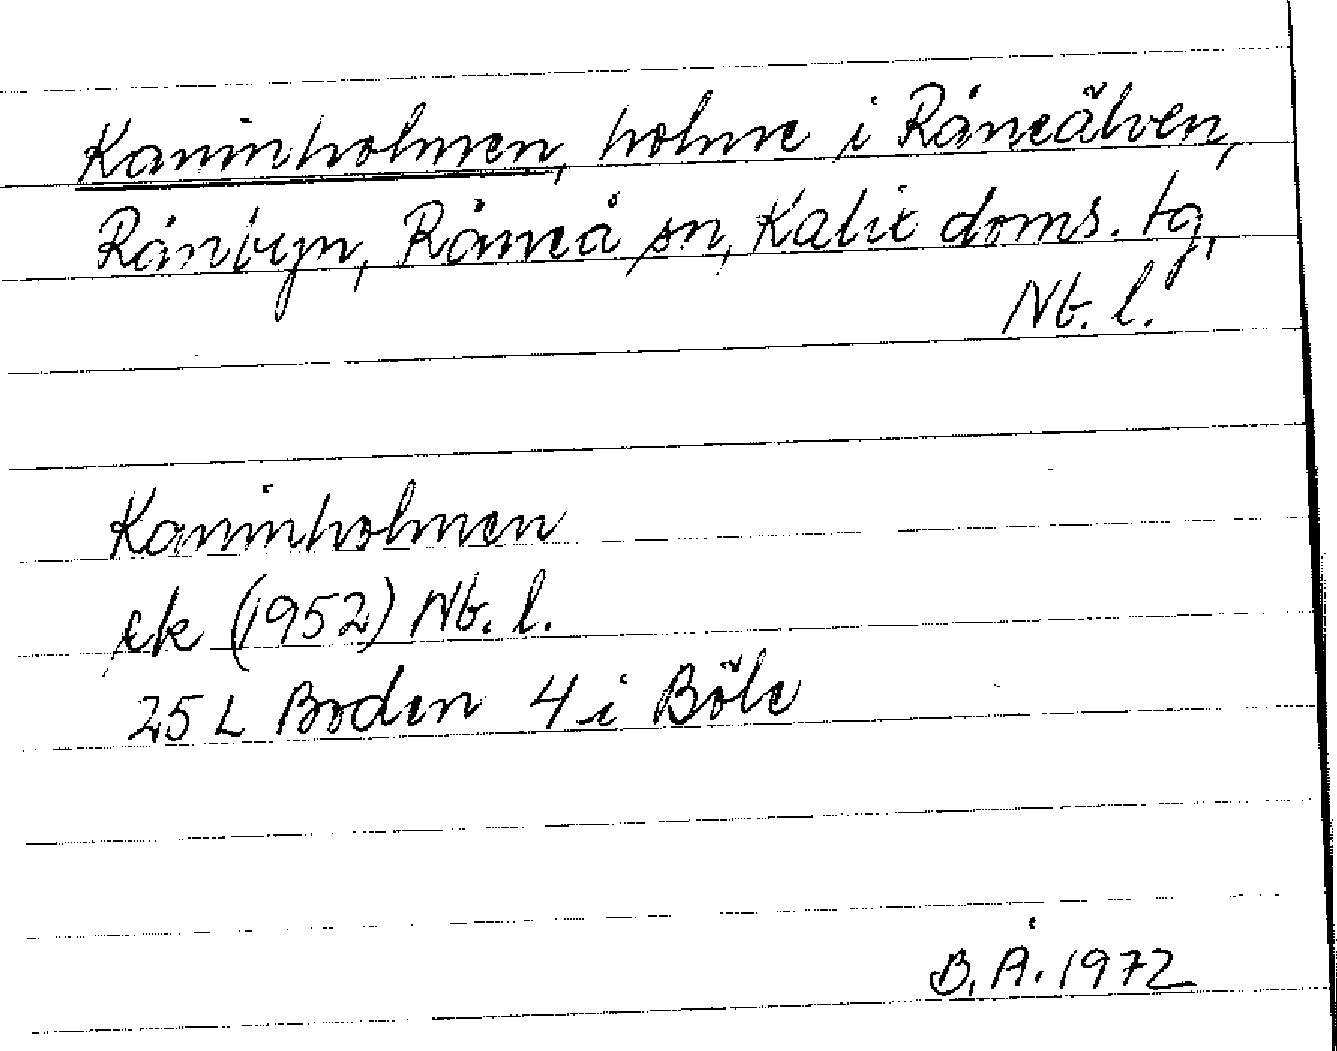 Kaninholmen, holme i Råneälven,
Rånbyn, Råneå sn, Kalix doms. tg,
Nb. l.
Kaninholmen
ek (1952) Nb. l.
25 L Boden 4 i Böle
B. Å. 1972